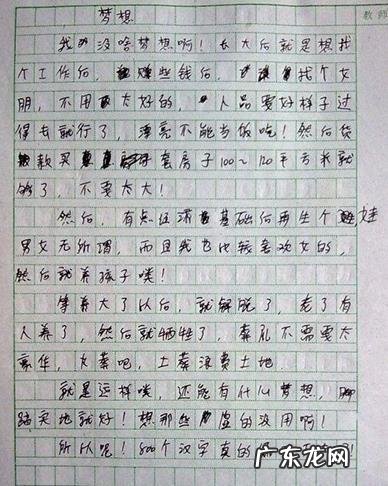 梦想
教师
我没啥梦想啊！长大后就是想找
个工作后，赚些钱后，找个女
朋，不用太好的，人品要好样子过
得去就行了，漂亮不能当饭吃！然后贷
款买套房子100～120平方米就
够了，不要太大！
然后，有点经济基础后再生个娃
男女无所谓，而且我也比较喜欢女的，
然后就养孩子喽！
等养大了以后，就解脱了，老了有
人养了，然后就牺牲了，葬礼不需要太
豪华，火葬吧，土葬浪费土地。
就是这样喽，还能有什么梦想，脚
踏实地就好！想那些虚的没用啊！
所以呢！800个汉字真的
广东龙网